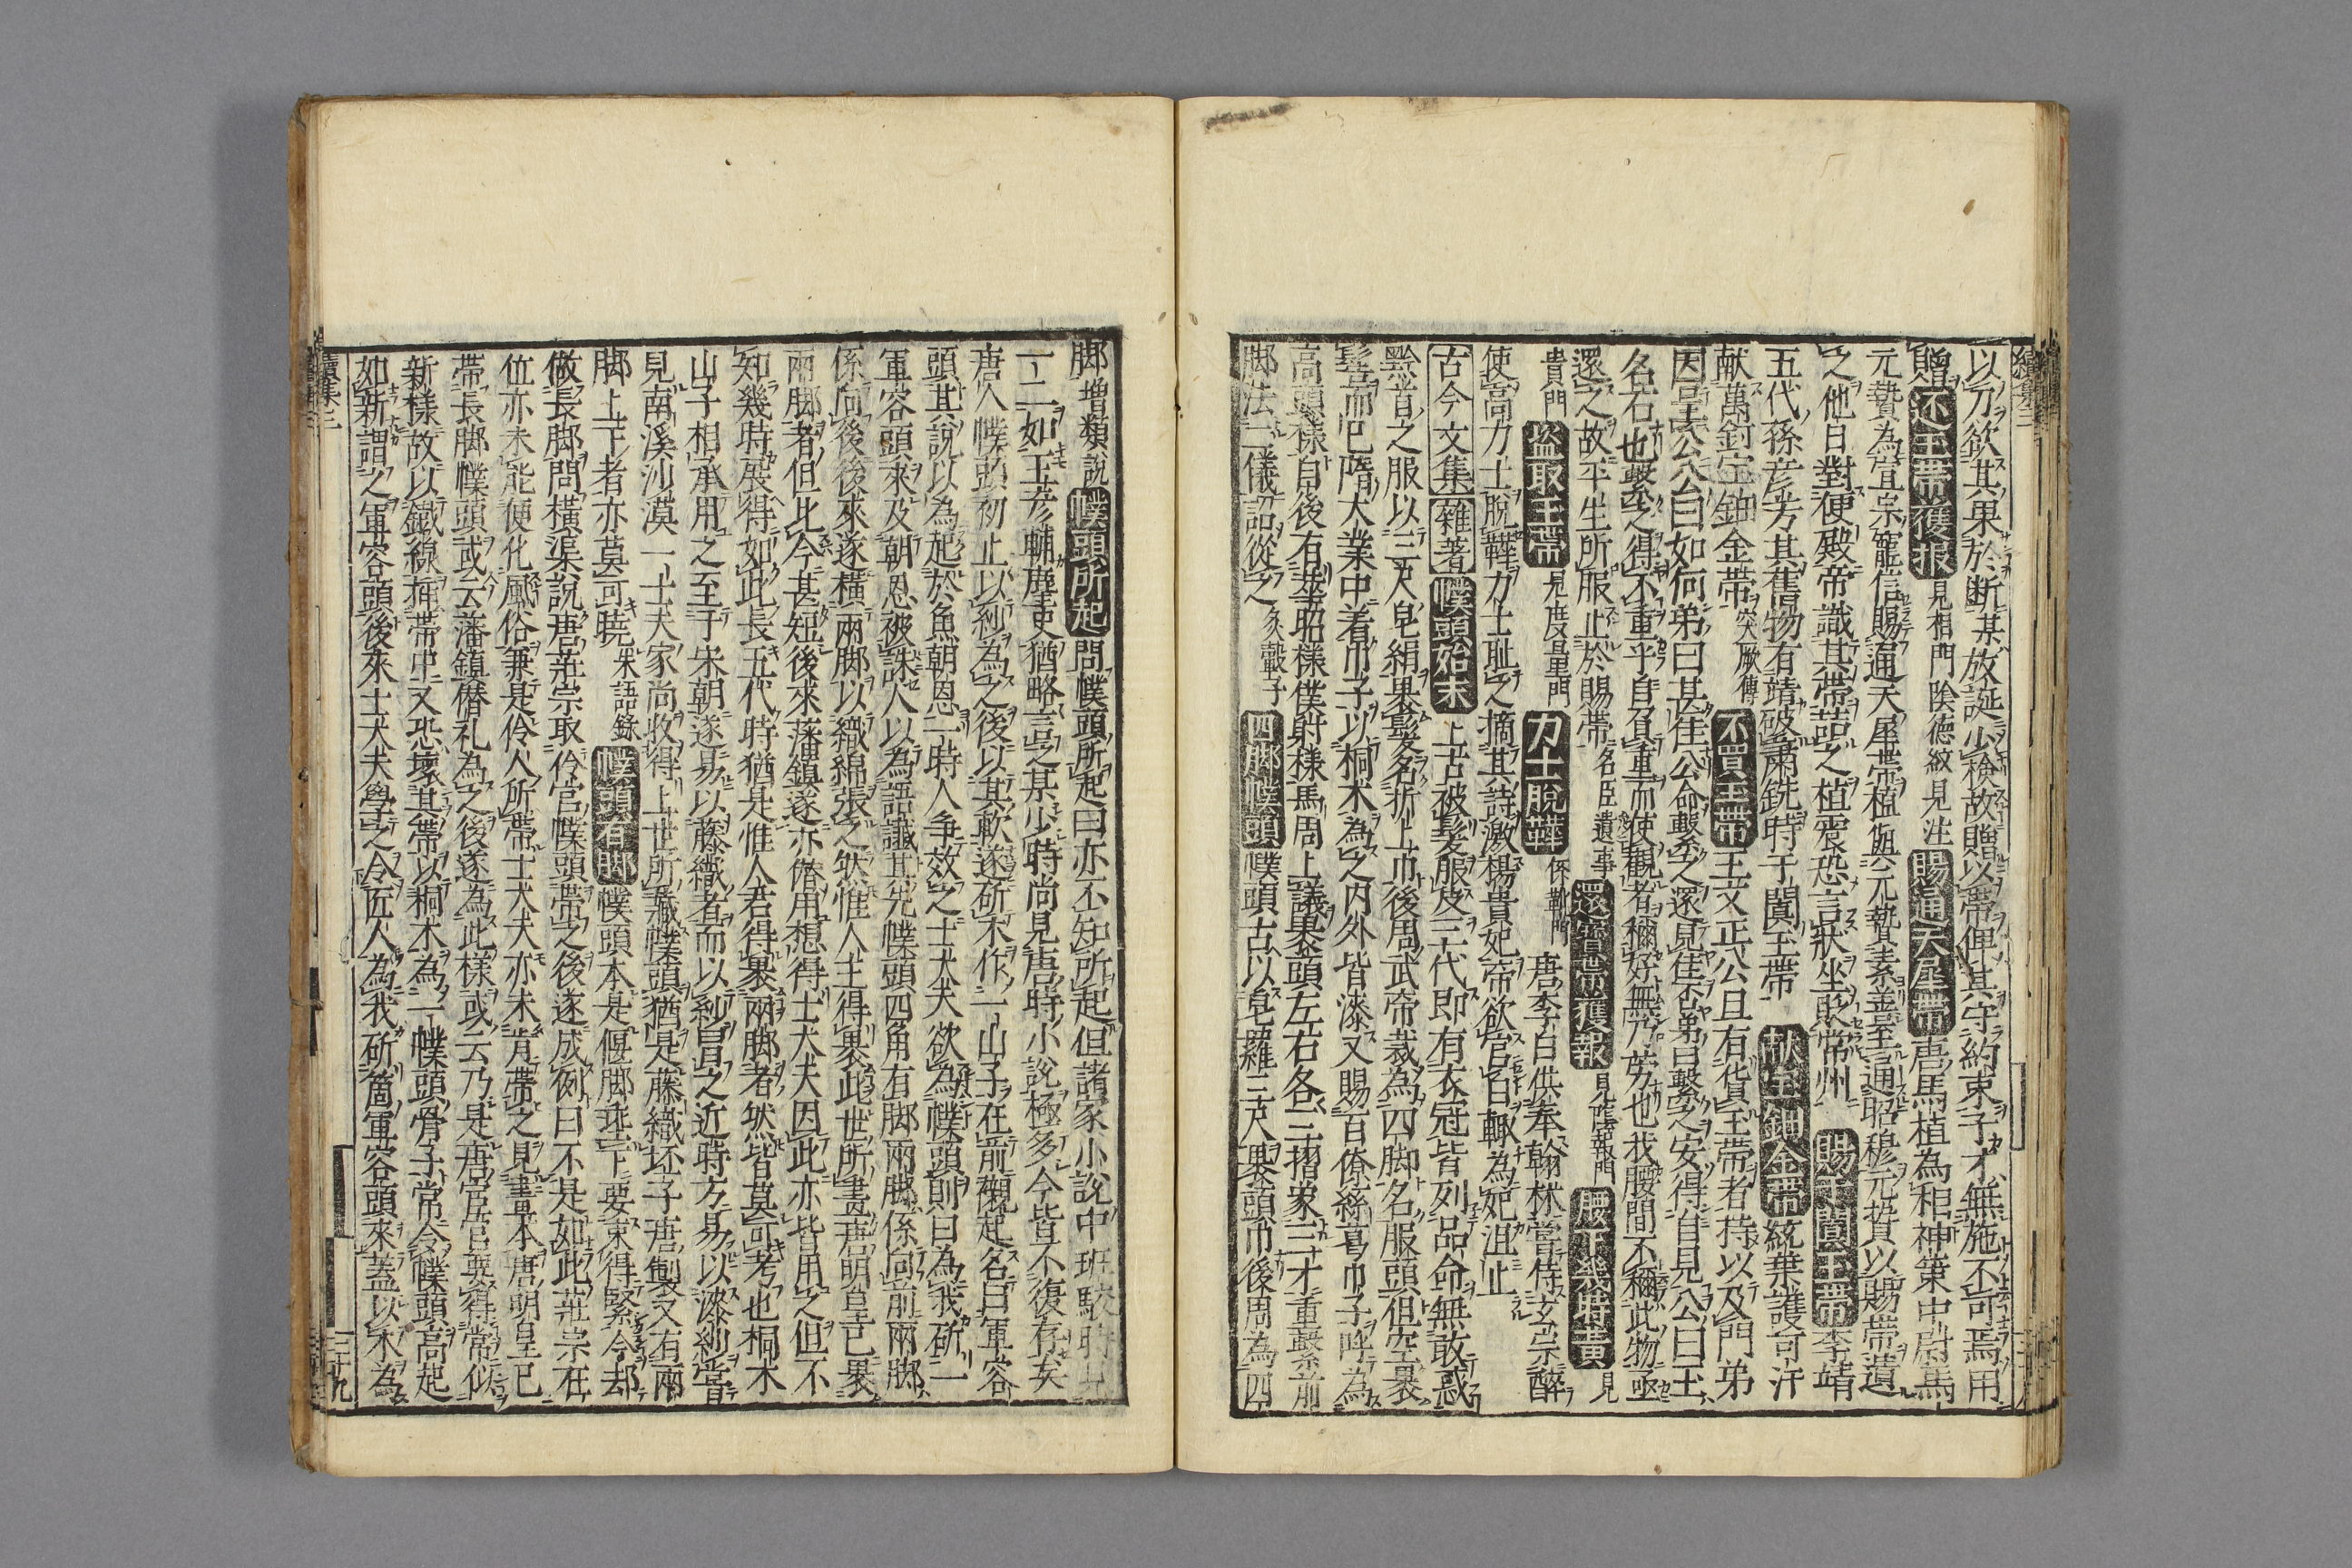 以刀欲其果於断某放誕少檢故贈以帶俾其守約束子才無施不可焉用
贈还玉帶獲报見相門陰德紋見注賜通天犀帶唐馬植為相神策中尉馬
元贄為宣宗寵信賜通天犀帶植與元贄素善至通昭穆元贄以賜帶遺
之他日對便殿帝識其帶詰之植震恐言狀坐貶常州賜于闐王帶李靖
五代孫彦芳其舊物有靖破蕭銑時于闐玉帶献宝鈿金帶統葉護可汗
献萬釘宝鈿金帶突厥傳不買玉帶王文正公旦有貨玉帶者持以及門弟
因呈公公曰如何弟曰甚佳公命繫之還見佳否弟曰繫之安得自見公曰玉
名石也繫之得不重乎自負重而使觀者稱好無乃労也我腰間不稱此物亟
還之故平生所服止於賜帶名臣遺事還寶帶獲報見陰報門腰下幾時黄見
貴門盜取玉帶見度量門力士脫鞾係靴門唐李白供奉翰林嘗侍玄宗醉
使高力士脫鞾力士耻之摘其詩激楊貴妃帝欲官白輙為妃沮止
古今文集雜著幞頭始末上古被髮服皮三代即有衣冠皆列品命無敢惑
黔首之服以三尺皂絹裹髮名折上巾後周武帝裁為四脚名服頭但空裹
髻而巳隋大業中着巾子以桐木為之内外皆漆又賜百僚絲葛巾子呼為
高頭樣自後有英昭樣僕射樣馬周上議裹頭左右各三摺象三才重繫前
脚法二儀詔從之炙轂子四脚幞頭幞頭古以皂羅三尺裹頭巾後周為四
脚増類說幞頭所起問幞頭所起曰亦不知所起但諸家小說中班駮時見
一二如王彦輔麈史猶略言之某少時尚見唐時小說極多今皆不復存矣
唐人幞頭初止以紗為之後以其軟遂斫木作一山子在前襯起名曰軍容
頭其說以為起於魚朝恩一時人争效之士大夫欲為幞頭則曰為我斫一
軍容頭來及朝恩被誅人以為語讖其先幞頭四角有脚兩脚係向前兩脚
係向後後來遂橫兩脚以織綿張之然惟人主得裹此世所畫唐明皇已裹
兩脚者但比今甚短後來藩鎮遂亦僭用想得士大夫因此亦皆用之但不
知幾時展得如此長五代時猶是惟人君得裹兩脚者然皆莫可考也桐木
山子相承用之至于宋朝遂易以藤織者而以紗冒之近時方易以漆紗嘗
見南溪沙漠一士大家尚收得上世所藏幞頭猶是藤織坯子唐製又有兩
脚上下者亦莫可曉朱語錄幞頭有脚幞頭本是偃脚垂下要束得緊今却
做長脚問横渠說唐莊宗取伶官幞頭帶之後遂成例曰不是如此莊宗在
位亦未能便化風俗兼是伶人所帶士大夫亦未肯帶之見畫本唐明皇已
帶長脚幞頭或云藩鎮僭礼為之後遂為此樣或云乃是唐宦官要得常似
新樣故以鐵線揷帶中又恐壞其帶以桐木為一幞頭骨子常令幞頭高起
如新謂之軍容頭後來士大夫學之令匠人為我斫箇軍容頭來蓋以木為
續集三
三十九